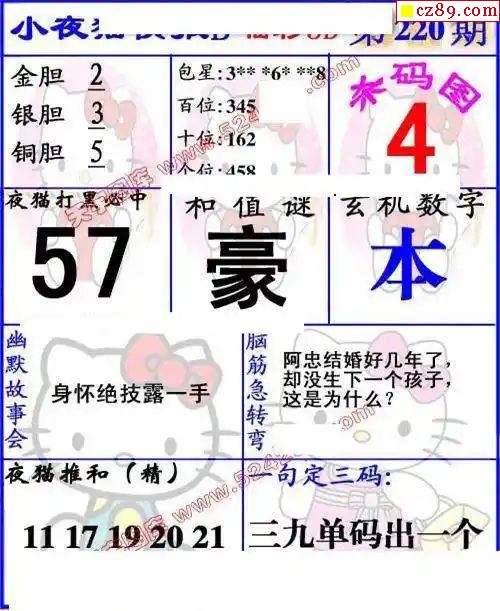 cz89.com
小夜猫
第220期
金胆 2
银胆 3
铜胆 5
包星:3** *6* **8
百位:345
十位:162
个位:458
本码图
4
夜猫打黑必中
57
和值谜
豪
玄机数字
本
幽默故事会
身怀绝技露一手
脑筋急转弯
阿忠结婚好几年了,
却没生下一个孩子,
这是为什么?
夜猫推和(精)
11 17 19 20 21
一句定三码:
三九单码出一个